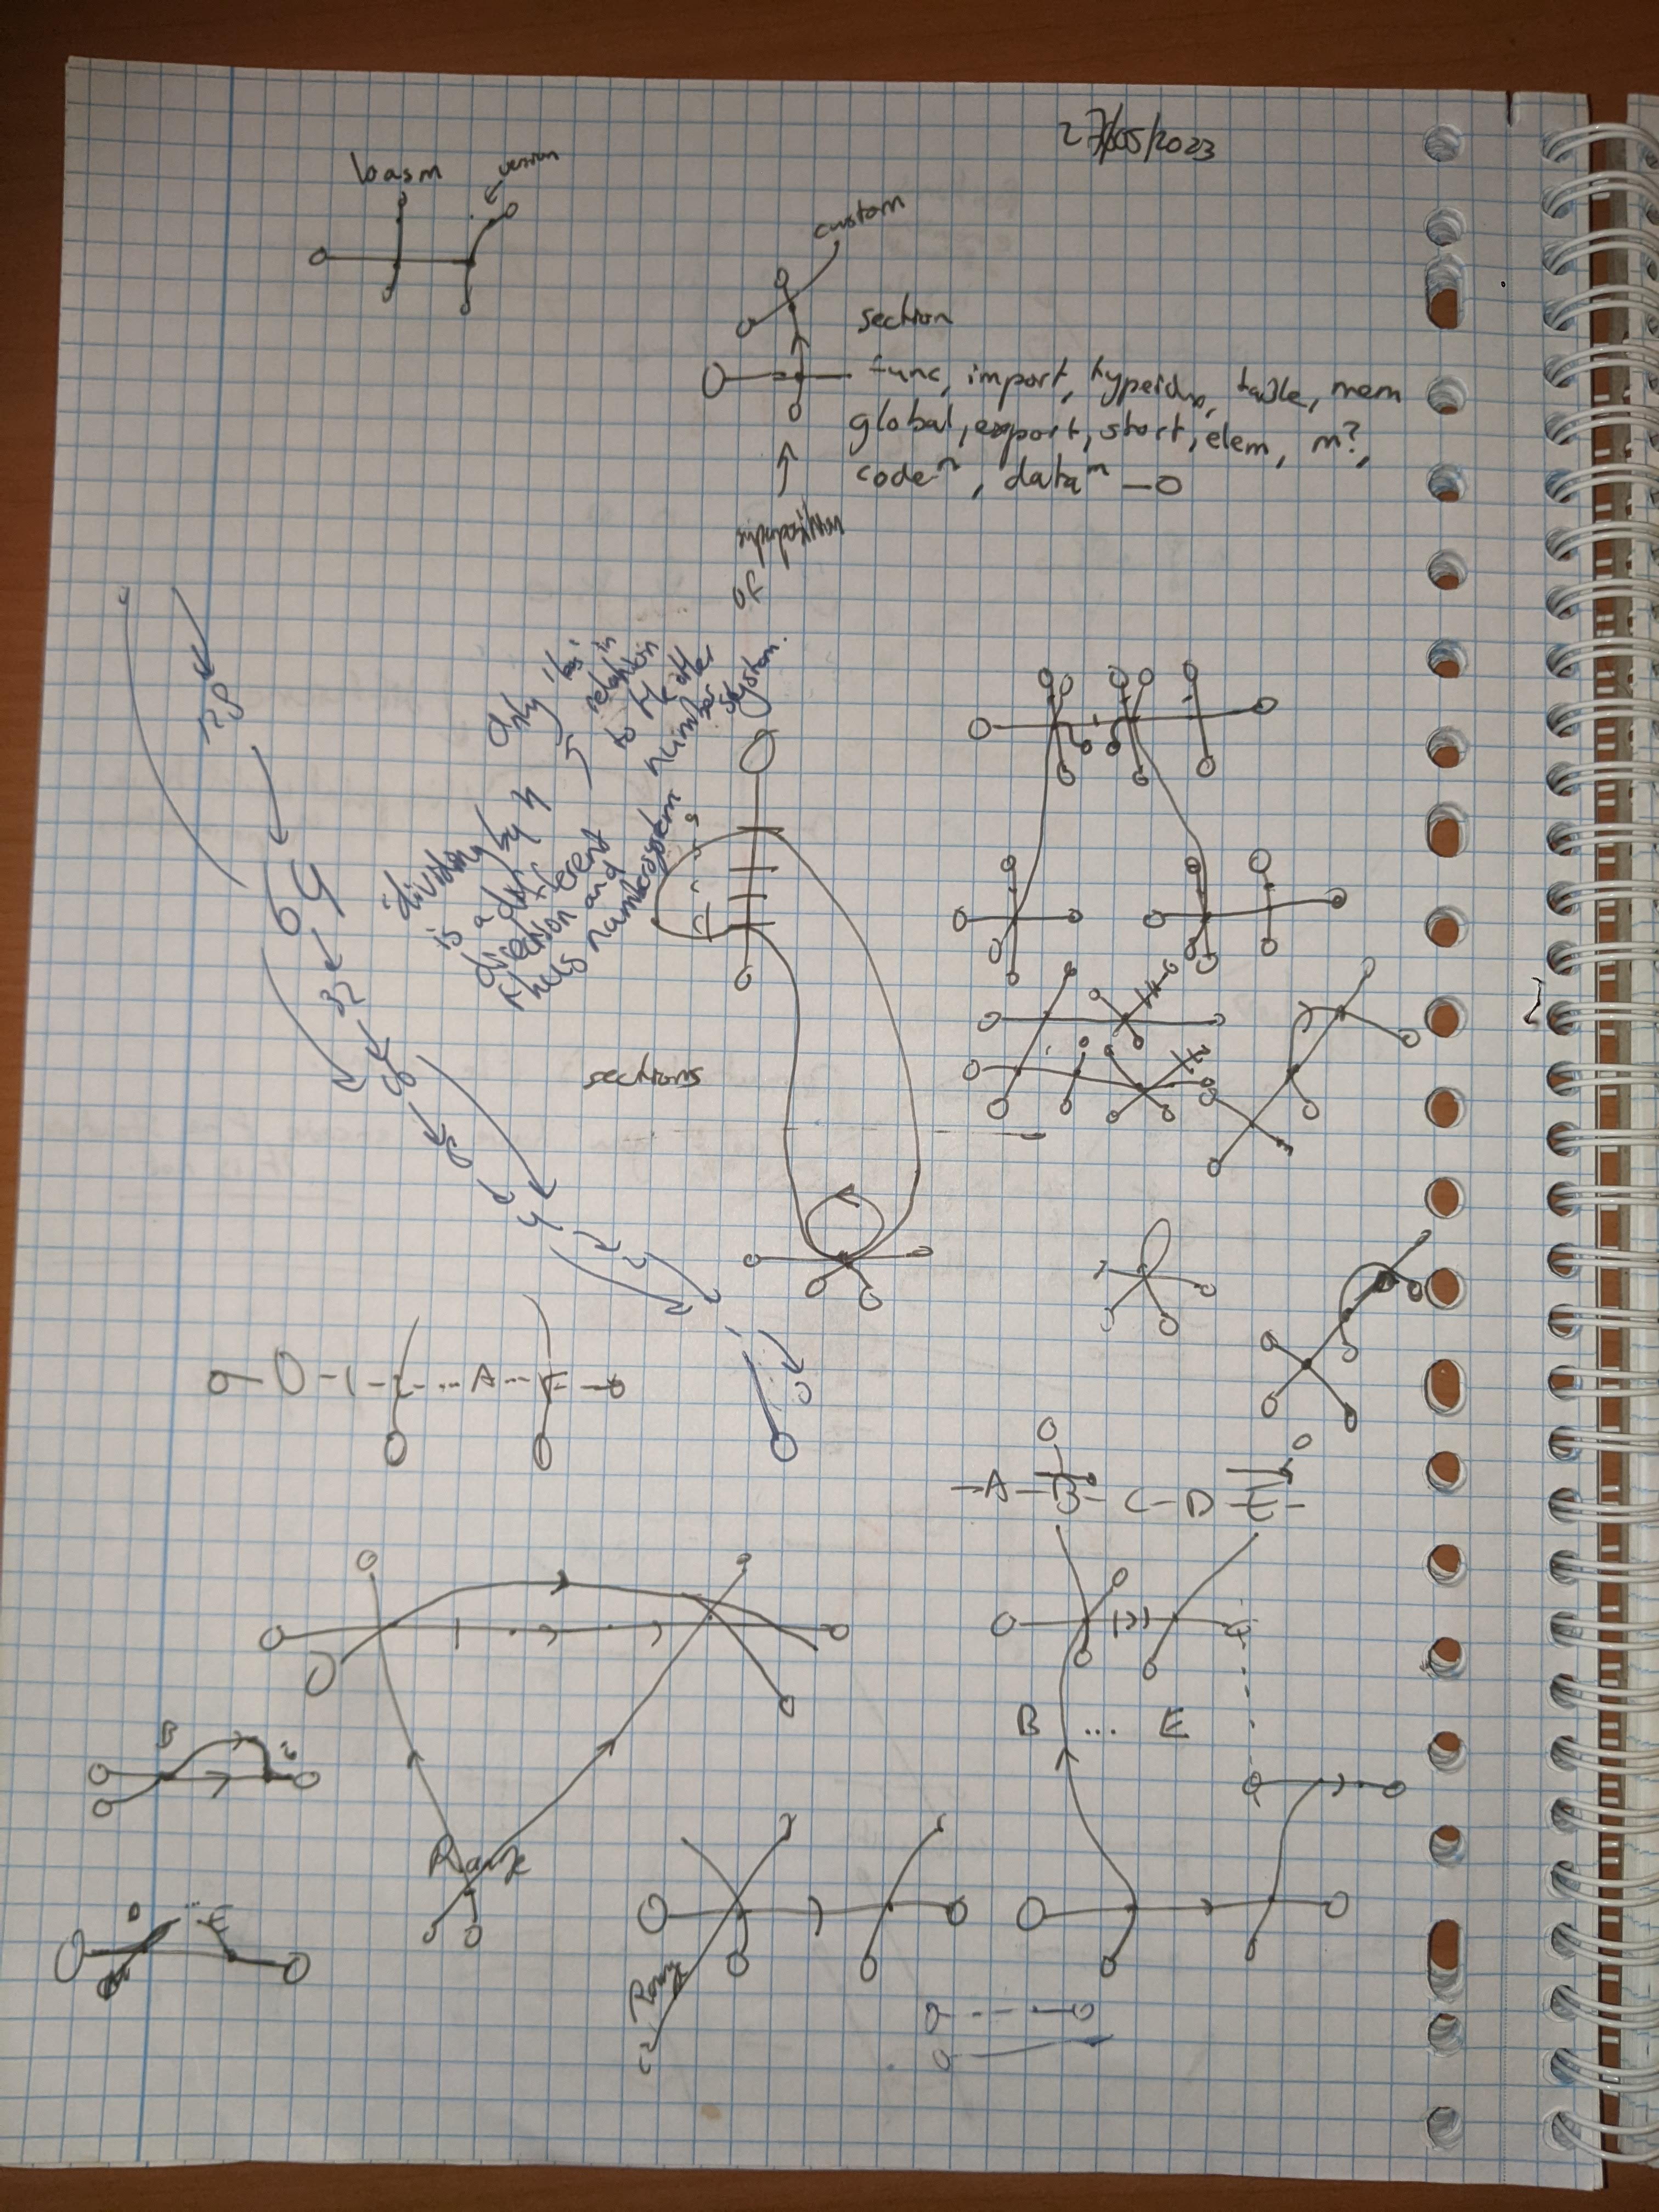 27/05/2023
version
custom
section
func, import, typeidx, table, mem
global, export, start, elem, m?,
code^n, data^m
of
128
64
32
16
8
4
2
1
0
dividing by
is a
different
direction and
thus numbersystem
only 'has'
relation in
to the other
number system.
sections
0 - 1 - ... A ... F
- A - B - C - D - E -
B ... E
B
Range